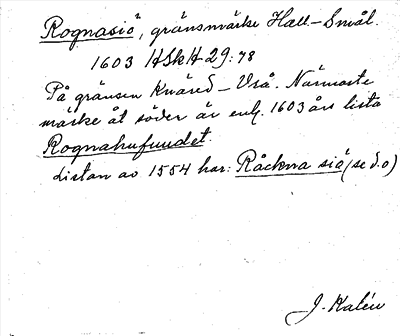 Rognasiö, gränsmärke Hall-Smål.
1603 HSkH 29:78
På gränsen Knäred-Vrå. Närmaste
märke åt söder är enl. 1603 års lista
Rognahufuudet.
Listan av 1554 har: Råckna siö (se d.o)
J. Kalén